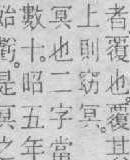 者覆也其
上則窈冥。
冥也二字當
數十昭五年
始虧是冥之